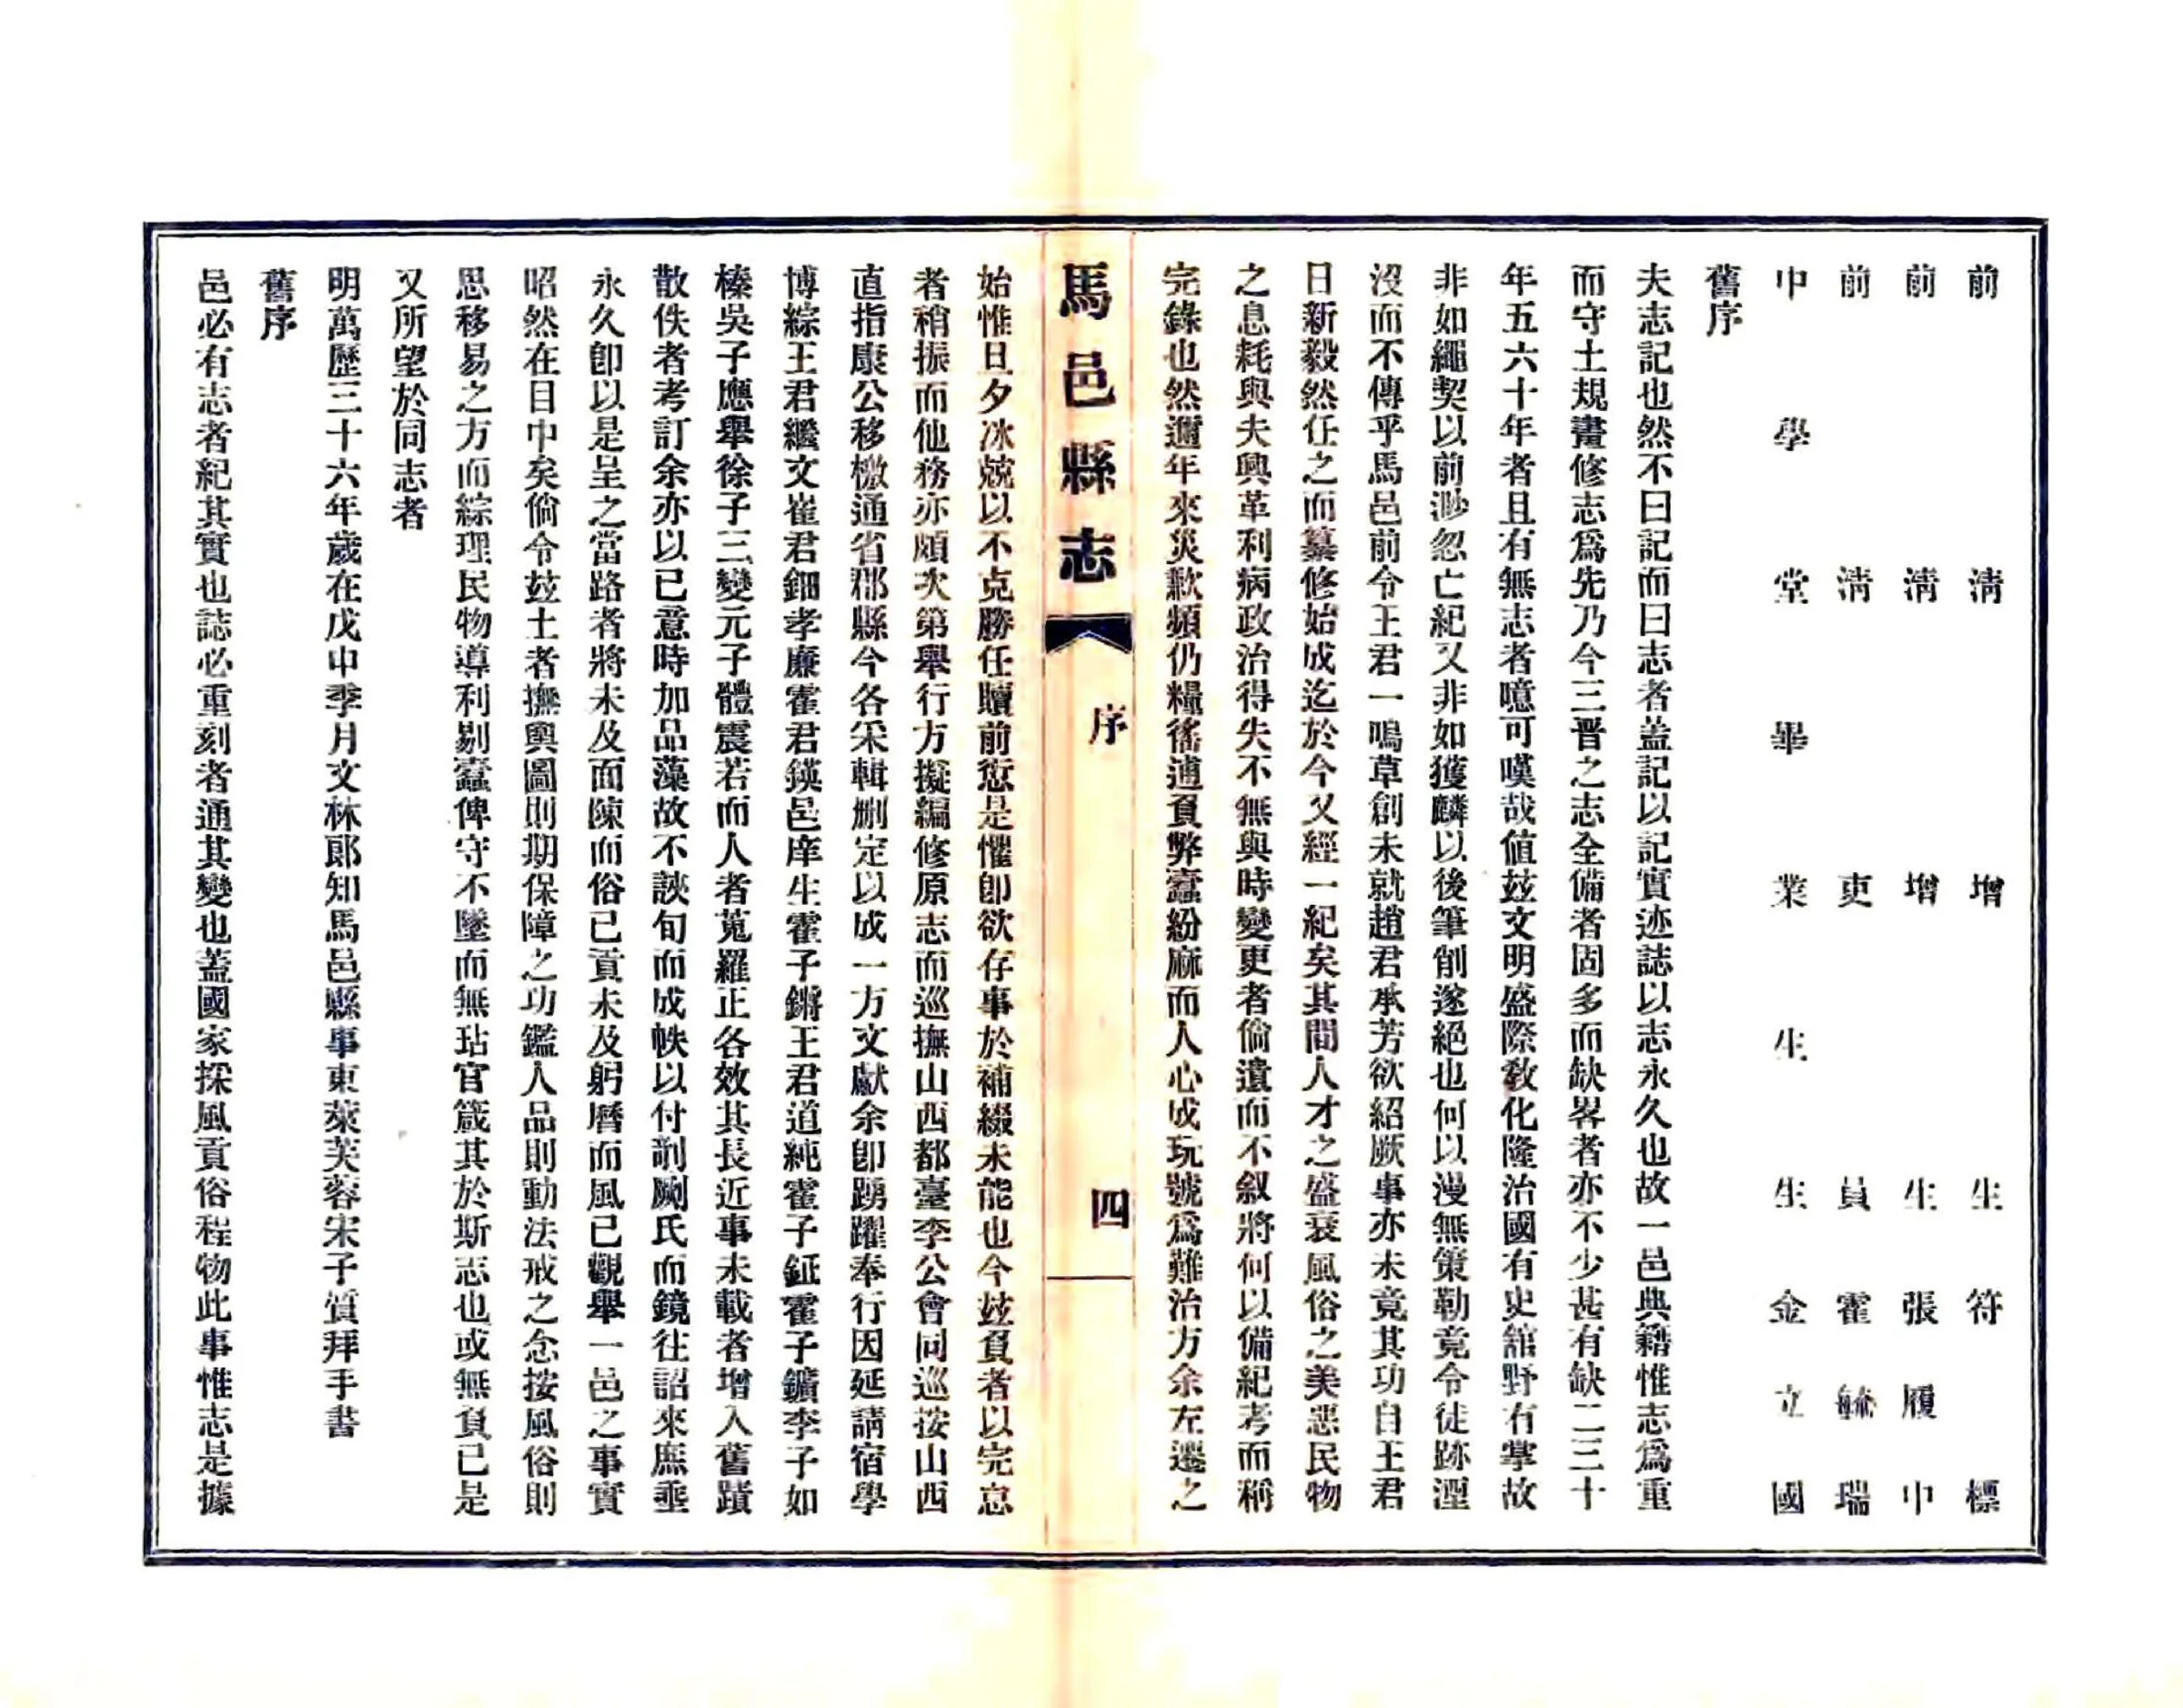 前清增生符標
前清增生張履中
前清吏員霍毓瑞
中學堂畢業生生金立國
舊序
夫志記也然不曰記而曰志者盖記以記實迹誌以志永久也故一邑典籍惟志爲重
而守土規畫修志爲先乃今三晋之志全備者固多而缺畧者亦不少甚有缺二三十
年五六十年者且有無志者噫可嘆哉值玆文明盛際敎化隆治國有史舘野有掌故
非如繩契以前渺忽亡紀又非如獲麟以後筆削遂絕也何以漫無策勒竟令徒跡湮
沒而不傳乎馬邑前令王君一鳴草創未就趙君承芳欲紹厥事亦未竟其功自王君
日新毅然任之而纂修始成迄於今又經一紀矣其間人才之盛衰風俗之美惡民物
之息耗與夫興革利病政治得失不無與時變更者倘遺而不敘將何以備紀考而稱
完錄也然邇年來災歉頻仍糧徭逋負弊蠹紛麻而人心成玩號爲難治方余左遷之
馬邑縣志
序
四
始惟旦夕冰兢以不克勝任贖前愆是懼卽欲存事於補綴未能也今玆負者以完怠
者稍振而他務亦頗次第舉行方擬編修原志而巡撫山西都臺李公會同巡按山西
直指康公移檄通省郡縣令各采輯删定以成一方文獻余卽踴躍奉行因延請宿學
博綜王君繼文崔君鈿孝廉霍君鍈邑庠生霍子鏘王君道純霍子鉦霍子鑛李子如
榛吳子應舉徐子三變元子體震若而人者蒐羅正各效其長近事未載者增入舊蹟
散佚者考訂余亦以已意時加品藻故不浹旬而成帙以付剞劂氏而鏡往詔來庶垂
永久卽以是呈之當路者將未及面陳而俗已貢未及躬曆而風已觀舉一邑之事實
昭然在目中矣倘令玆土者撫輿圖則期保障之功鑑人品則動法戒之念按風俗則
思移易之方而綜理民物導利剔蠹俾守不墜而無玷官箴其於斯志也或無負已是
又所望於同志者
明萬歷三十六年歲在戊申季月文林郞知馬邑縣事東萊芙蓉宋子質拜手書
舊序
邑必有志者紀其實也誌必重刻者通其變也蓋國家採風貢俗程物此事惟志是據